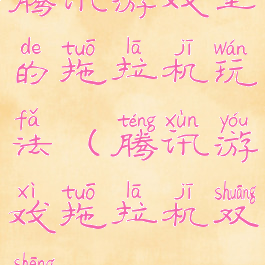 腾讯游戏里
de tuō lā jī wán
的拖拉机玩
fǎ téng xùn yóu
法（腾讯游
xì tuō lā jī shuāng
戏拖拉机双
shēng